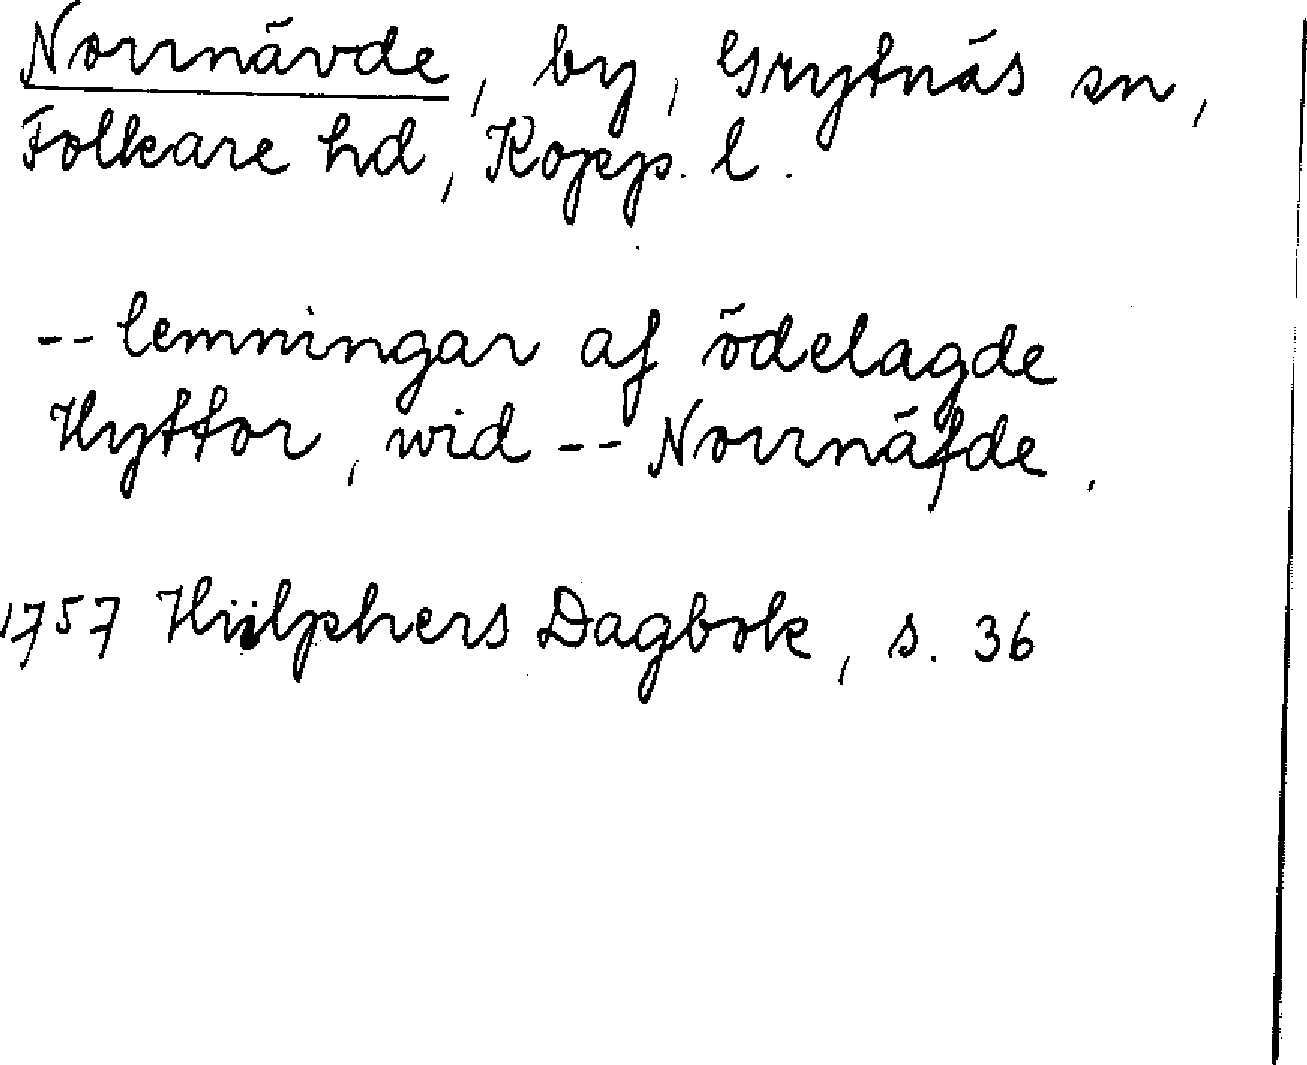 Norrnävde, by, Grytnäs sn,
Folkare hd, Kopp. l.
-- lemningar af ödelagde
Hyttor, wid -- Norrnäfde.
1757 Hülphers Dagbok, s. 36